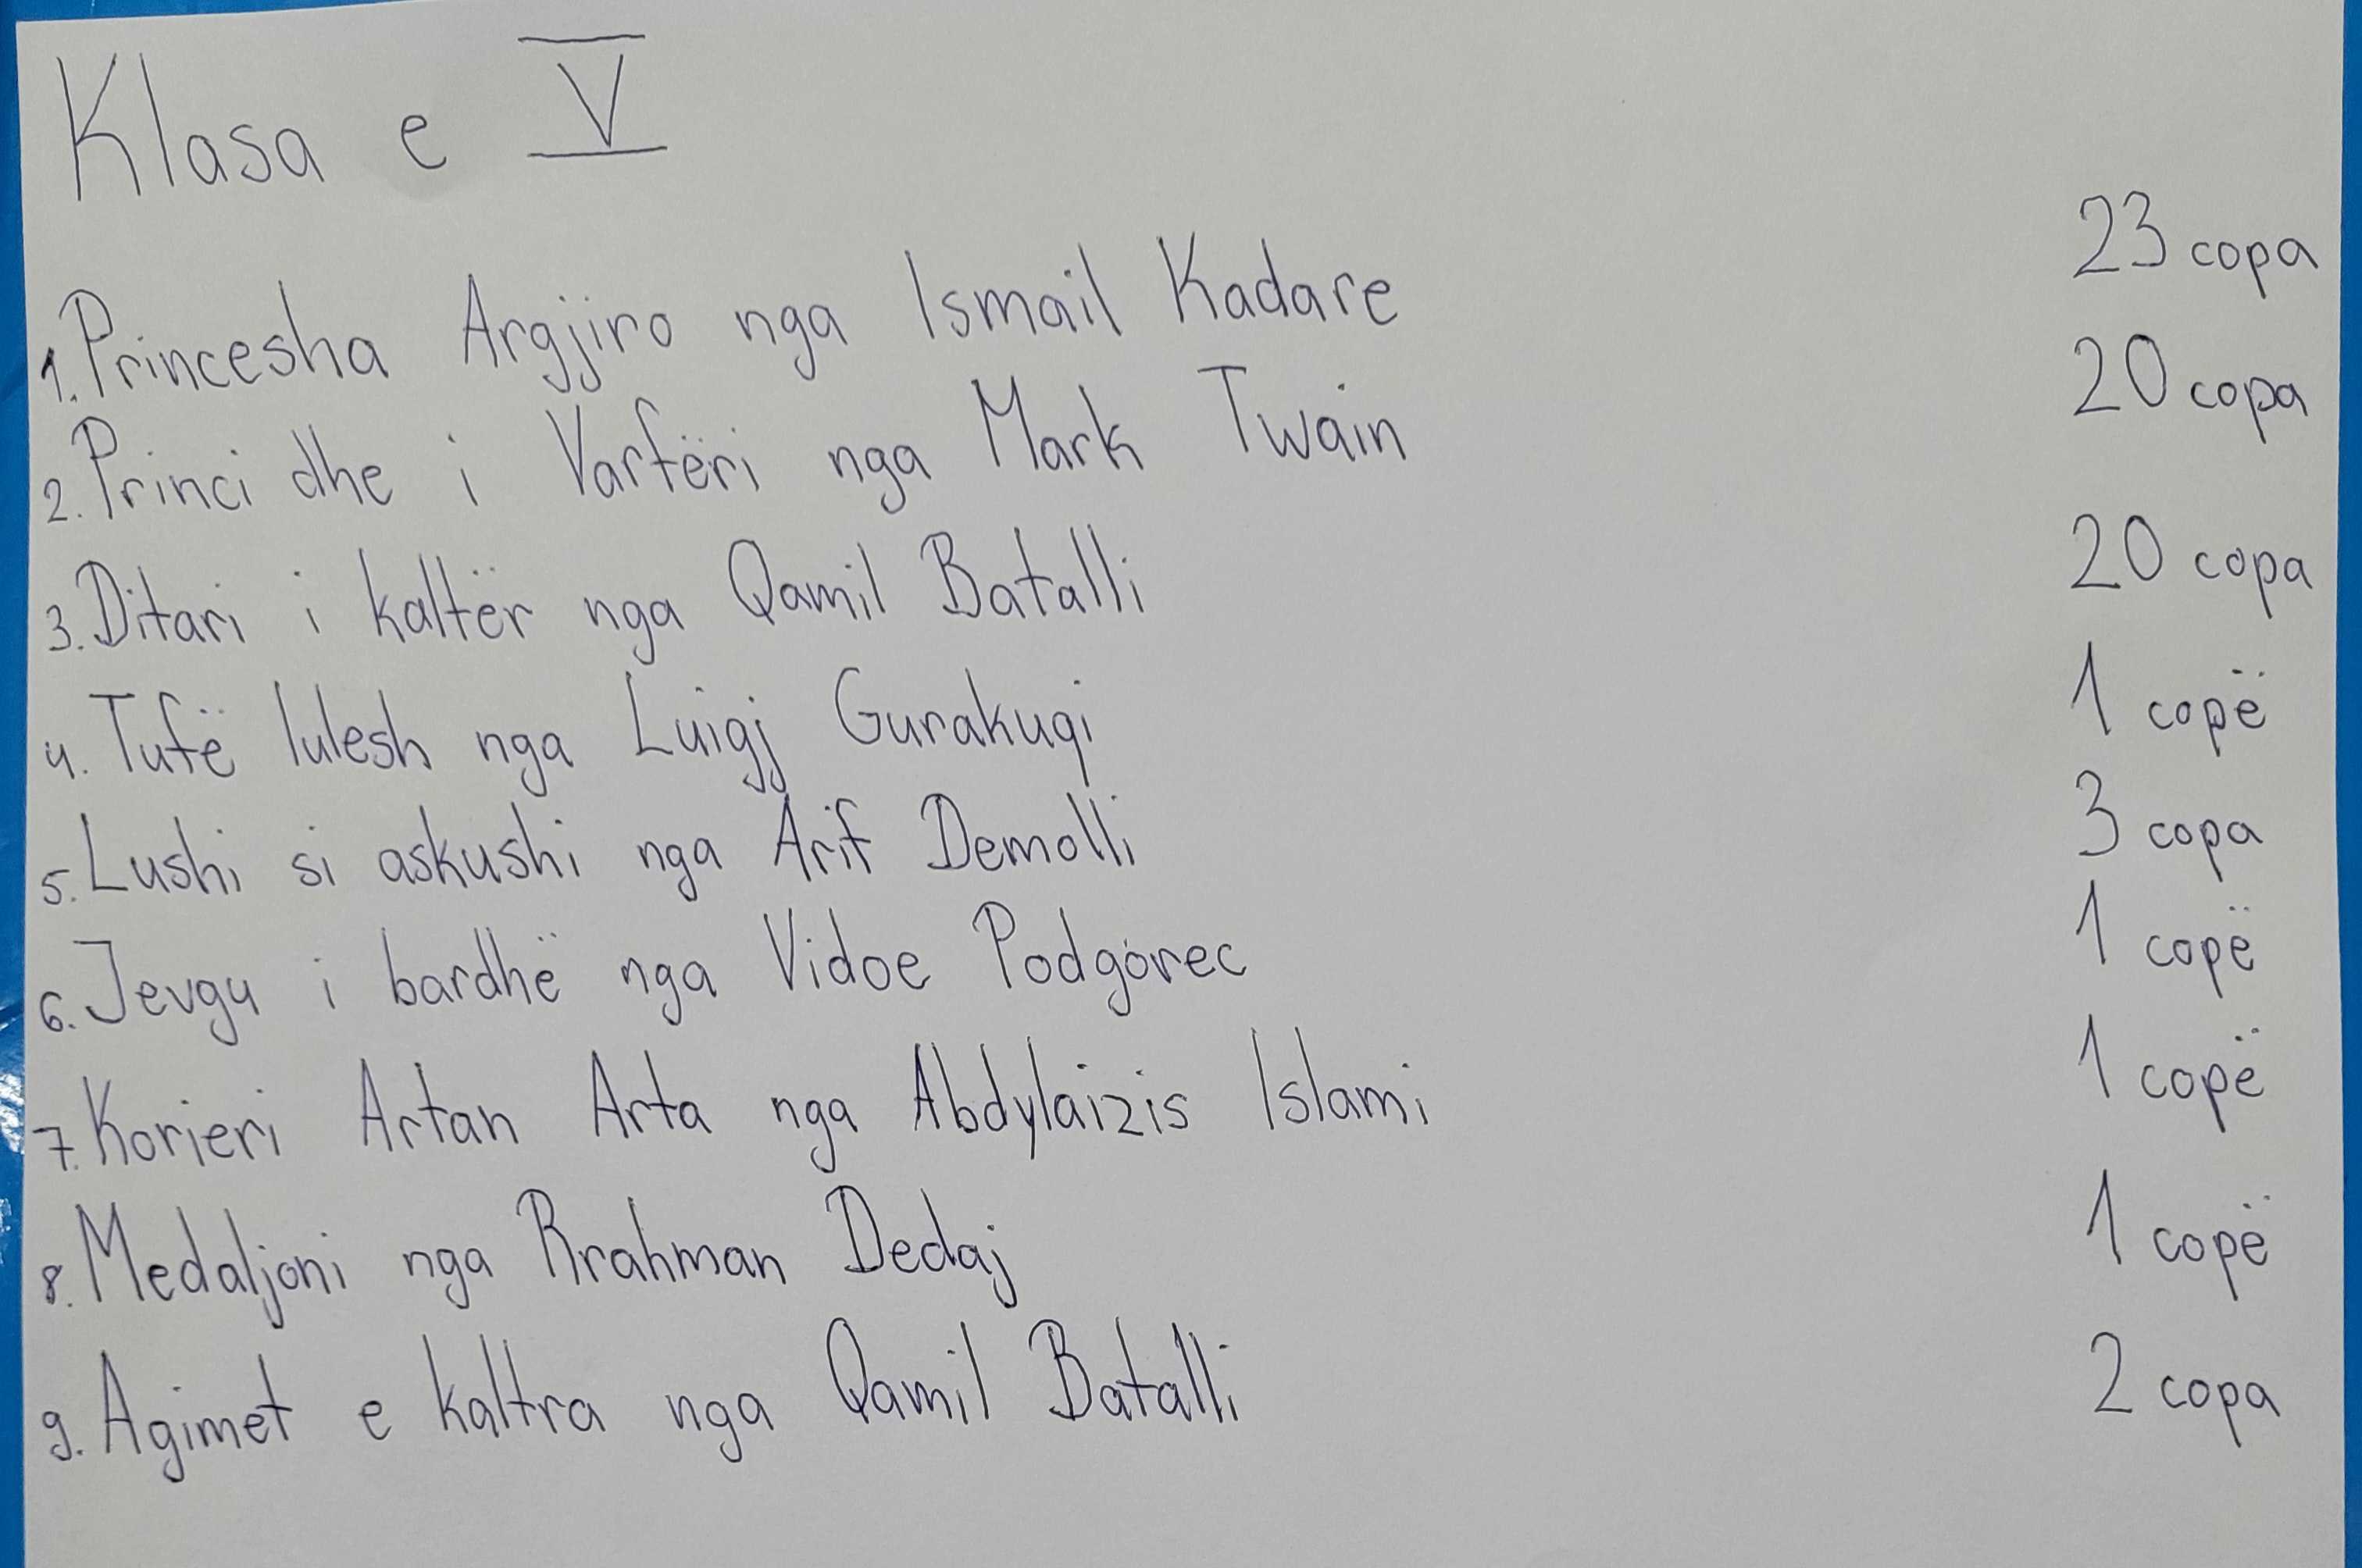 Klasa e V
1. Princesha Argjiro nga Ismail Kadare 23 copa
2. Princi dhe i Varfëri nga Mark Twain 20 copa
3. Ditari i kaltër nga Qamil Batalli 20 copa
4. Tufë lulesh nga Luigj Gurakuqi 1 copë
5. Lushi si askushi nga Arif Demolli 3 copa
6. Jevgu i bardhë nga Vidoe Podgorec 1 copë
7. Korieri Artan Arta nga Abdylaizis Islami 1 copë
8. Medaljoni nga Rrahman Dedaj 1 copë
9. Agimet e kaltra nga Qamil Batalli 2 copa